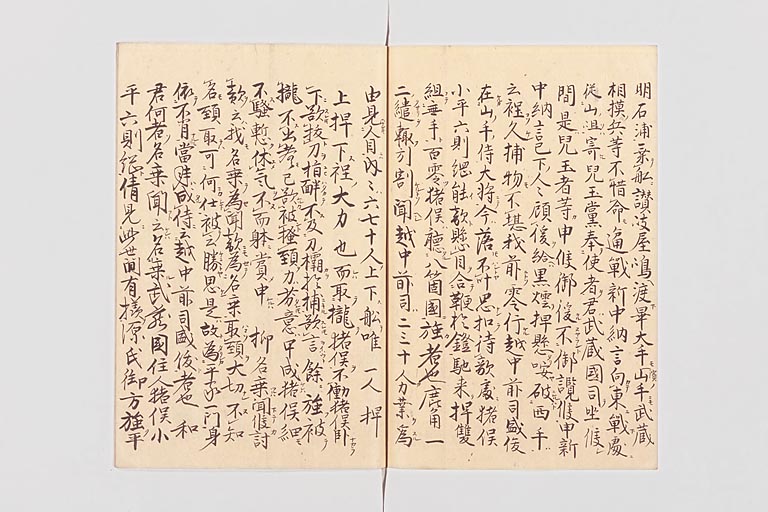 明石浦乗船讃岐屋嶋渡畢大手山手武蔵
相摸兵等不惜命逼戦新中納言向東戦處
従山沮寄児玉黨奉使者君武蔵國司坐候
間是児玉者等申候御後不御覧候申新
中納言已下人々顧後給黒煙押懸噫破西手
云程久捕物不堪我前零行越中前司盛俊
在山手侍大将今落不叶思扣待敵處猪俣
小平六則綱能敵懸目合鞭於鐙馳来押雙
組垂手一百零猪俣聴八箇國強者也鹿角一
二繾輙引割聞越中前司二三十人力業為
由見人目内々六七十人上下船唯一人押
上押下程大力也而取攏猪俣不働猪俣臥
下欲抜刀指酔不及刀欛於捕欲言餘強被
攏不出聲已欲被搔頸力劣意甲成猪俣綱
不騒慙休氣不而躰賞申抑名乗聞候討
歟云我名乗為聞敵為名乗取頸大切不知
名頸取可何仕被云勝思是故為平家一門身
依不肖當時成侍云越中前司盛俊者也和
君何者名乗聞云名乗武蔵國住人猪俣小
平六則綱倩見此世間有様源氏御方強平